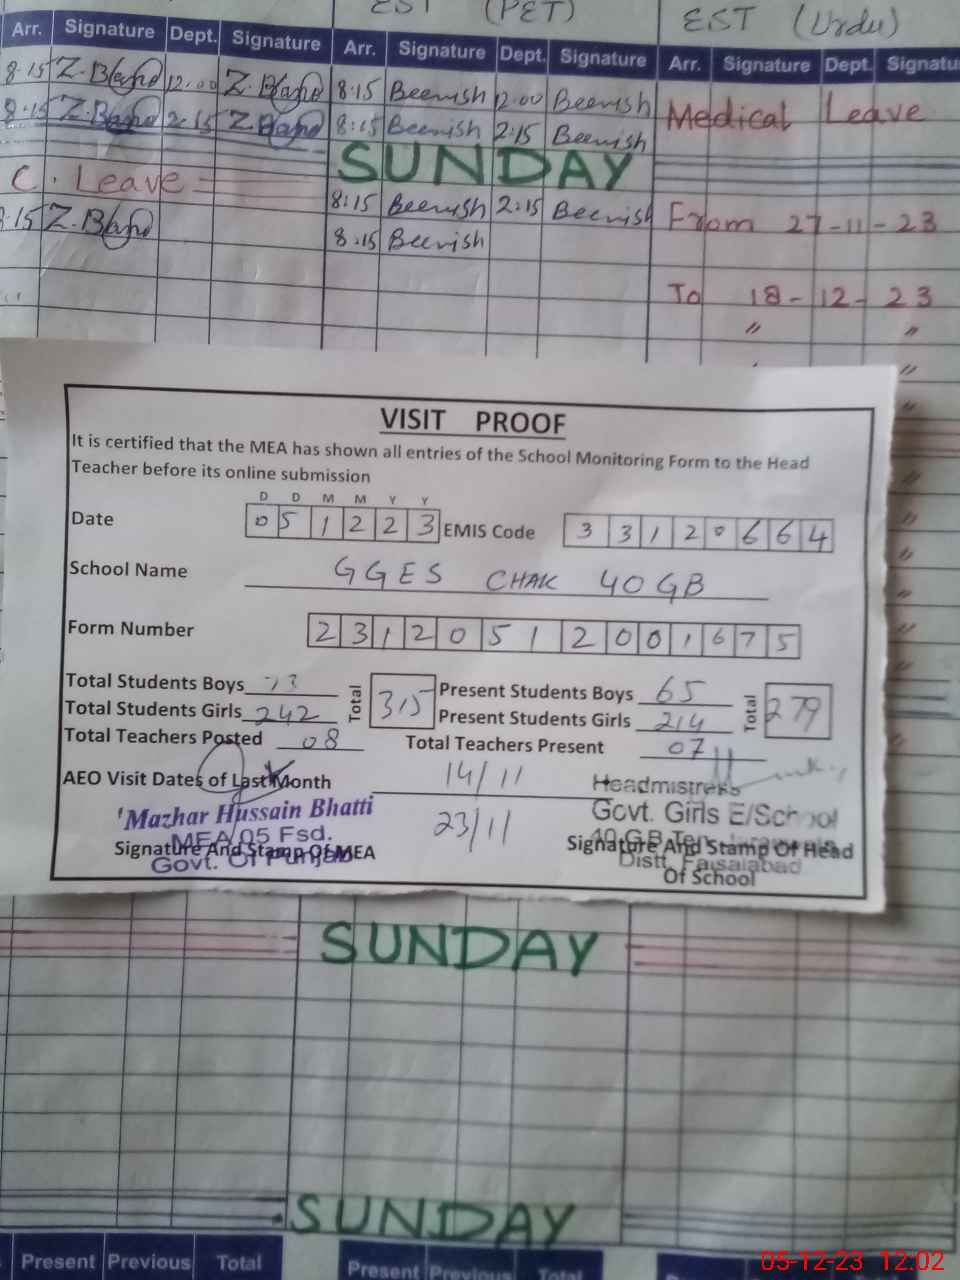 EST (PET) EST (Urdu)
Arr. Signature Dept. Signature Arr. Signature Dept. Signature Arr. Signature Dept. Signatu
8.15 Z.Bano 12.00 Z.Bano 8:15 Beenish 12.00 Beenish
8.15 Z.Bano 2.15 Z.Bano 8:15 Beenish 2:15 Beenish Medical Leave
SUNDAY
C. Leave 8:15 Beenish 2:15 Beenish From 27-11-23
8.15 Z.Bano 8.15 Beenish
To 18-12-23
" "
VISIT PROOF
It is certified that the MEA has shown all entries of the School Monitoring Form to the Head
Teacher before its online submission
D D M M Y Y
Date 0 5 1 2 2 3 EMIS Code 3 3 1 2 0 6 6 4
School Name GGES CHAK 40 GB
Form Number 2 3 1 2 0 5 1 2 0 0 1 6 7 5
Total Students Boys 73 Total 315 Present Students Boys 65 Total 279
Total Students Girls 242 Present Students Girls 214
Total Teachers Posted 08 Total Teachers Present 07
AEO Visit Dates of Last Month 14/11
23/11
Headmistress
Mazhar Hussain Bhatti Govt. Girls E/School
MEA/05 Fsd. 40 G.B Teh.
Signature And Stamp Of MEA Signature And Stamp Of Head
Govt. Of Punjab Distt. Faisalabad
Of School
SUNDAY
SUNDAY
Present Previous Total Present Previous Total
05-12-23 12:02